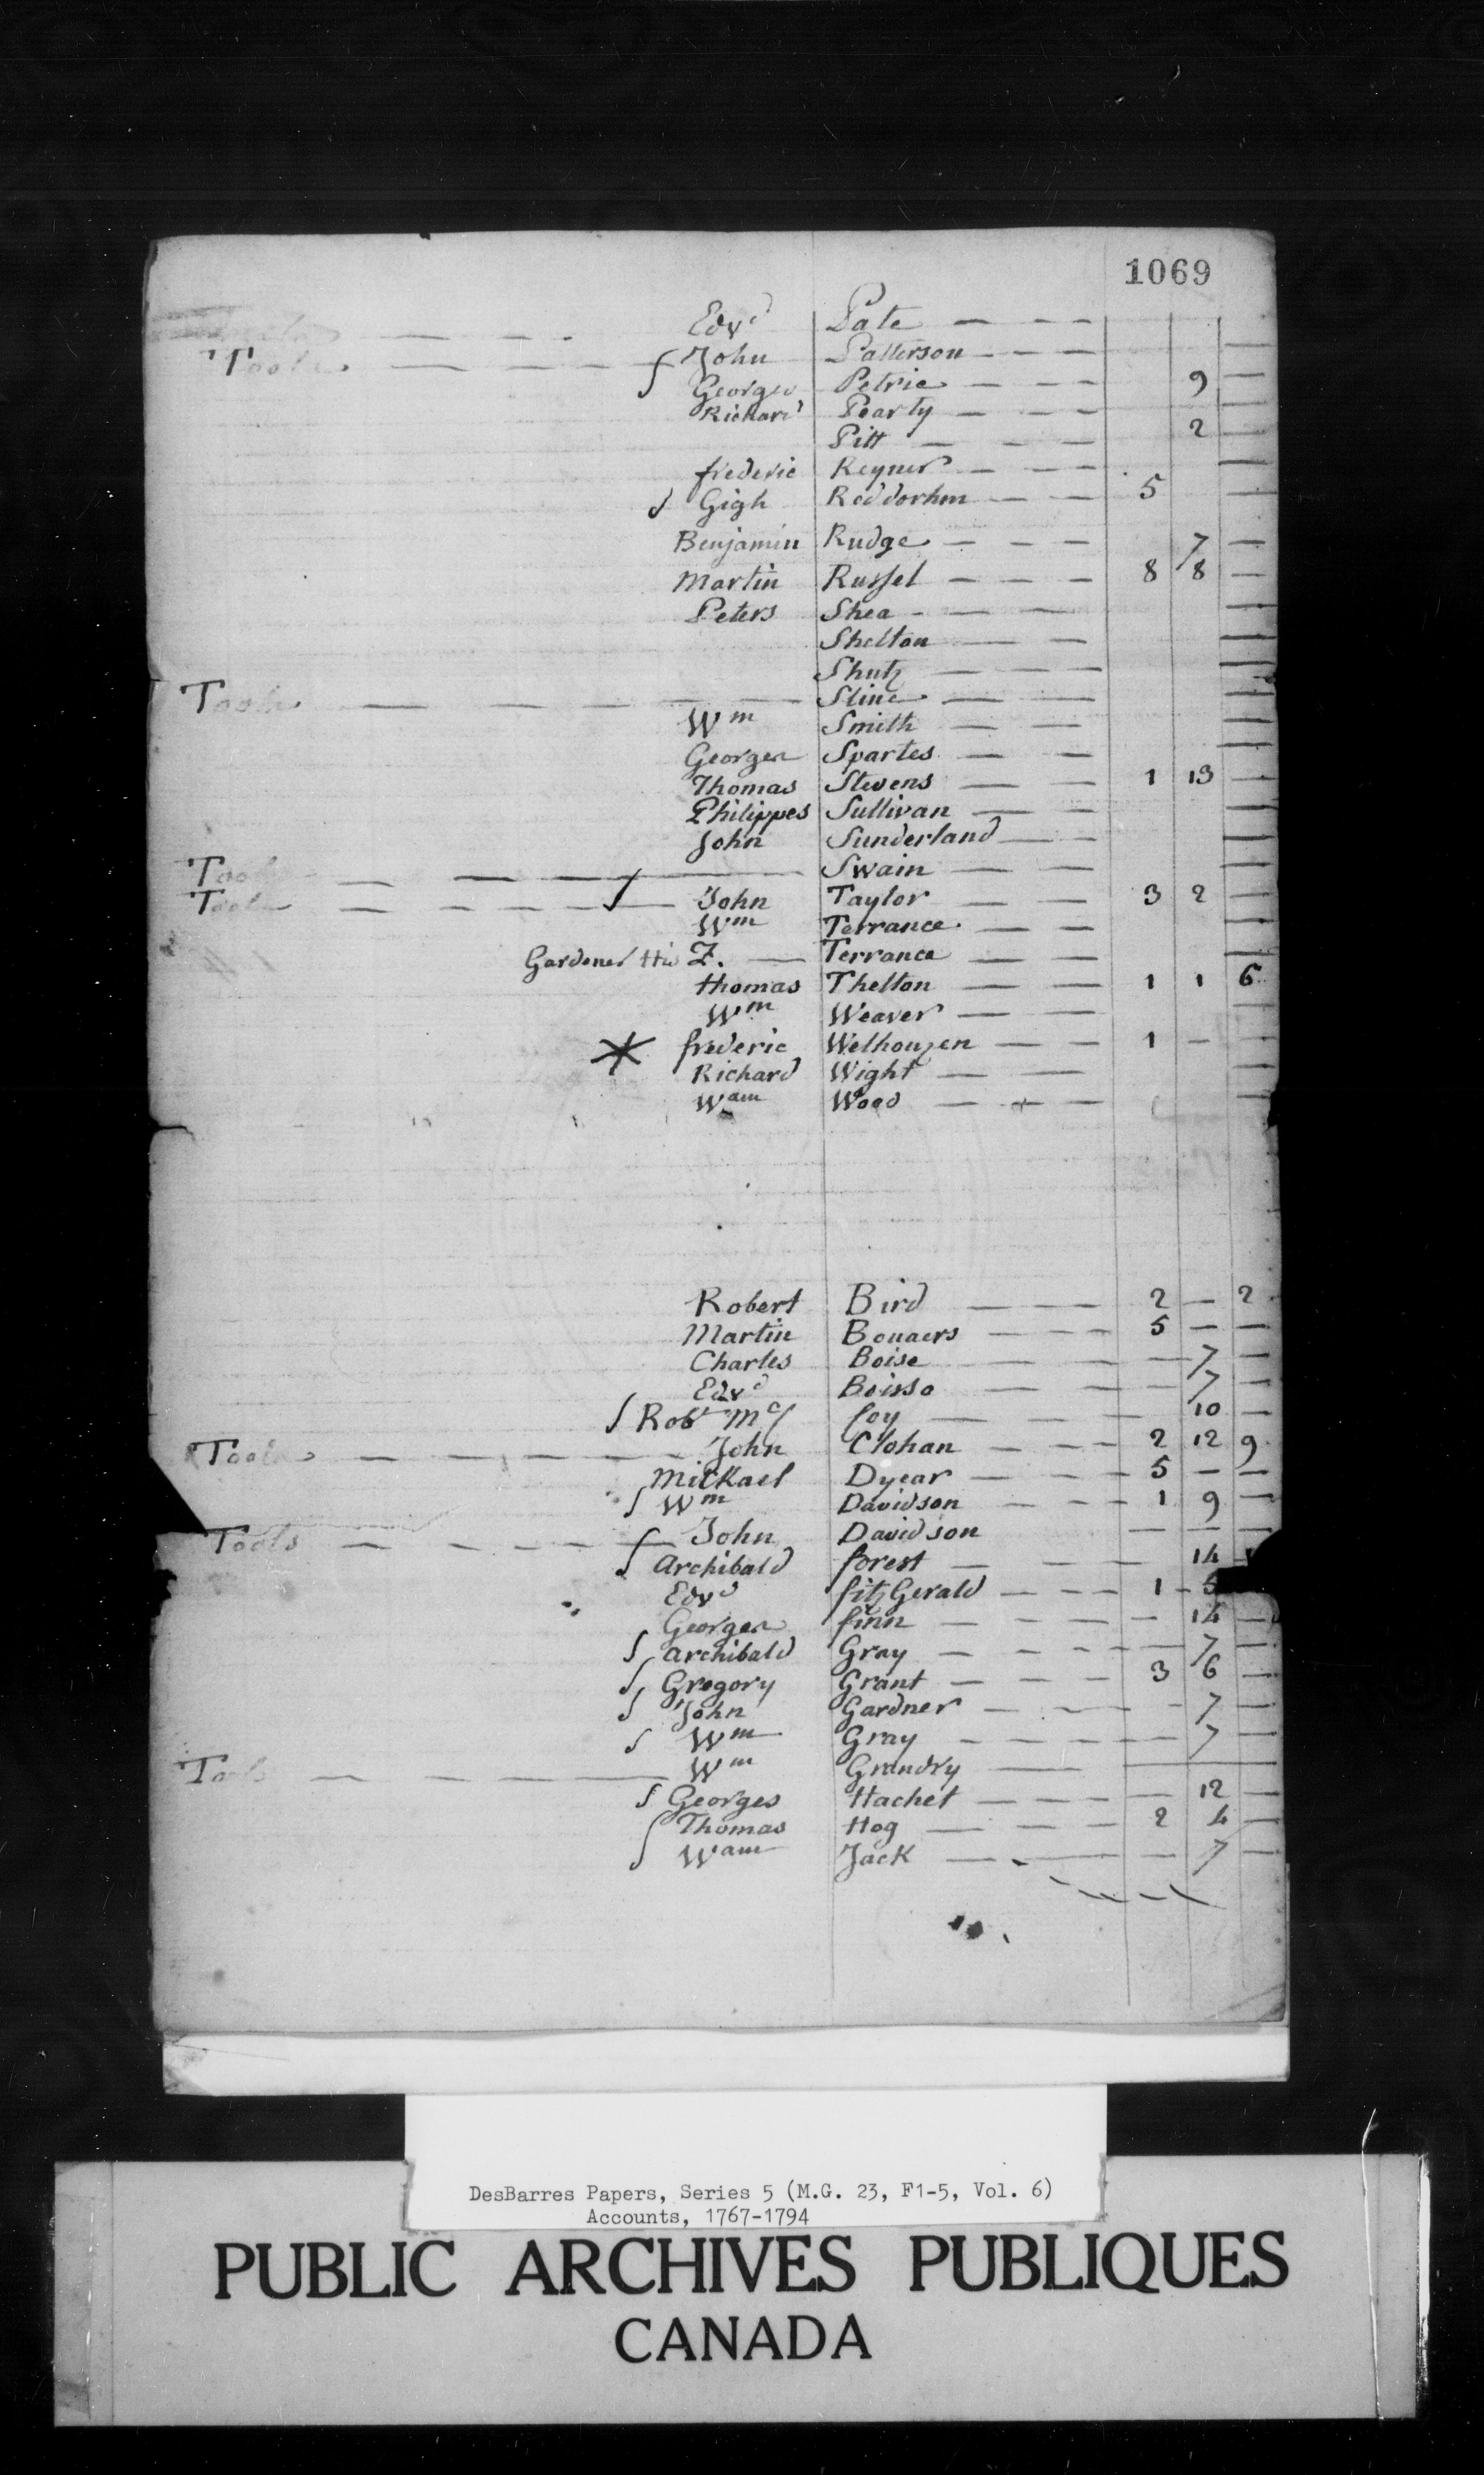 1069
Edvd Pate — — —
Tools — — — John Patterson — — —
George Petrie — — — 9 —
Richard Pearty — — —
Pitt — — — 2 —
frederic Reyner — — —
Gigh Reddorhm — — 5 —
Benjamin Rudge — — — 7 —
Martin Russel — — — 8 8 —
Peters Shea — — —
Shelton — — —
Shutz — — —
Tools — — — Sline — — —
Wm Smith — — —
Georges Spartes — — —
Thomas Stevens — — 1 13 —
Philippes Sullivan — — —
John Sunderland — — —
Tools — — — Swain — — —
Tools — — — John Taylor — — 3 2 —
Wm Terrance — — —
Gardener His Z. — Terrance — — —
thomas Thelton — — 1 1 6
Wm Weaver — — —
* frederic Welhouzen — — 1 —
Richard Wight — — —
Wam Wood — — —
Robert Bird — — — 2 — 2
Martin Bouaers — — — 5 — —
Charles Boise — — — 7 —
Edvd Boisso — — — 7 —
Robt Mc foy — — — 10 —
Tools — — — John Clohan — — — 2 12 9
Mickael Dyear — — — 5 — —
Wm Davidson — — — 1 9 —
Tools — — — John Davidson — — —
Archibald forest — — — 14
Edvd fitzGerald — — — 1 - 5
Georges finn — — — 14 —
Archibald Gray — — — 7 —
Gregory Grant — — — 3 6 —
John Gardner — — — 7 —
Wm Gray — — — 7 —
Tools — — — Wm Grandry — —
Georges Hachet — — — 12 —
Thomas Hog — — — 2 4 —
Wam Jack — — — 7 —
DesBarres Papers, Series 5 (M.G. 23, F1-5, Vol. 6)
Accounts, 1767-1794
PUBLIC ARCHIVES PUBLIQUES
CANADA